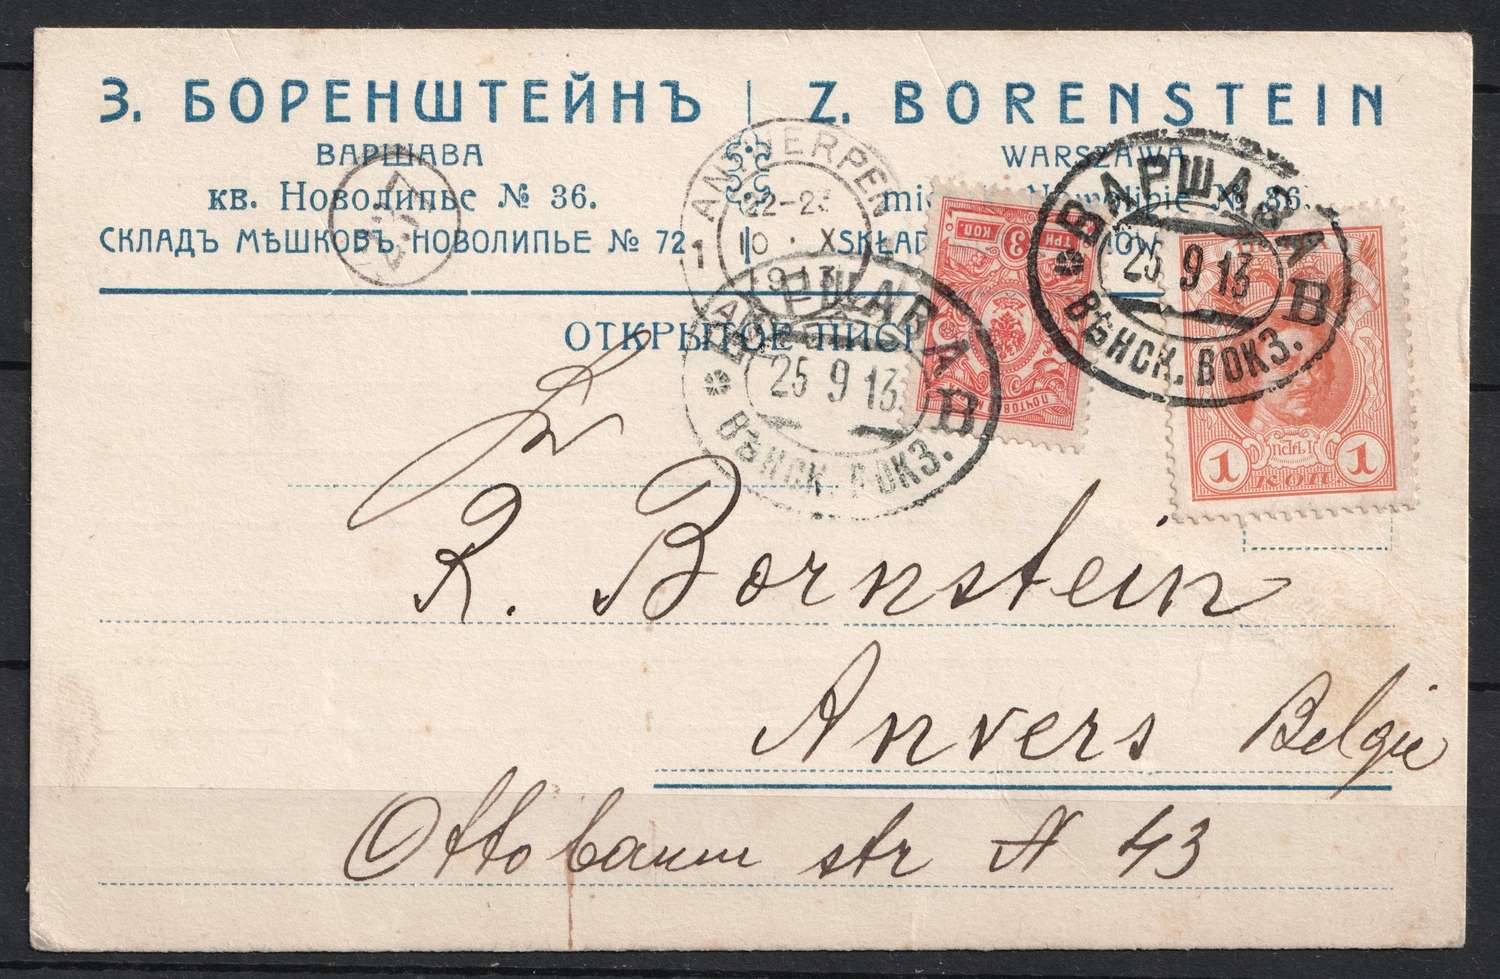 З. БОРЕНШТЕЙНЪ | Z. BORENSTEIN
ВАРШАВА WARSZAWA
кв. Новолипье № 36. Nowolipie № 36.
СКЛАДЪ МѢШКОВЪ, НОВОЛИПЬЕ № 72 SKŁAD
ОТКРЫТОЕ ПИСЬ
ANTWERPEN
22-23
1 10 · X
1913
ВАРШАВА
25 9 13
В
ВѢНСК. ВОКЗ.
ВАРШАВА
25 9 13
В
ВѢНСК. ВОКЗ.
ТРИ 3 КОП
ПОЧТОВАЯ
ПЕТРЪ I
1 КОП 1
R. Bornstein
Anvers Belgie
Ottobaum str N 43